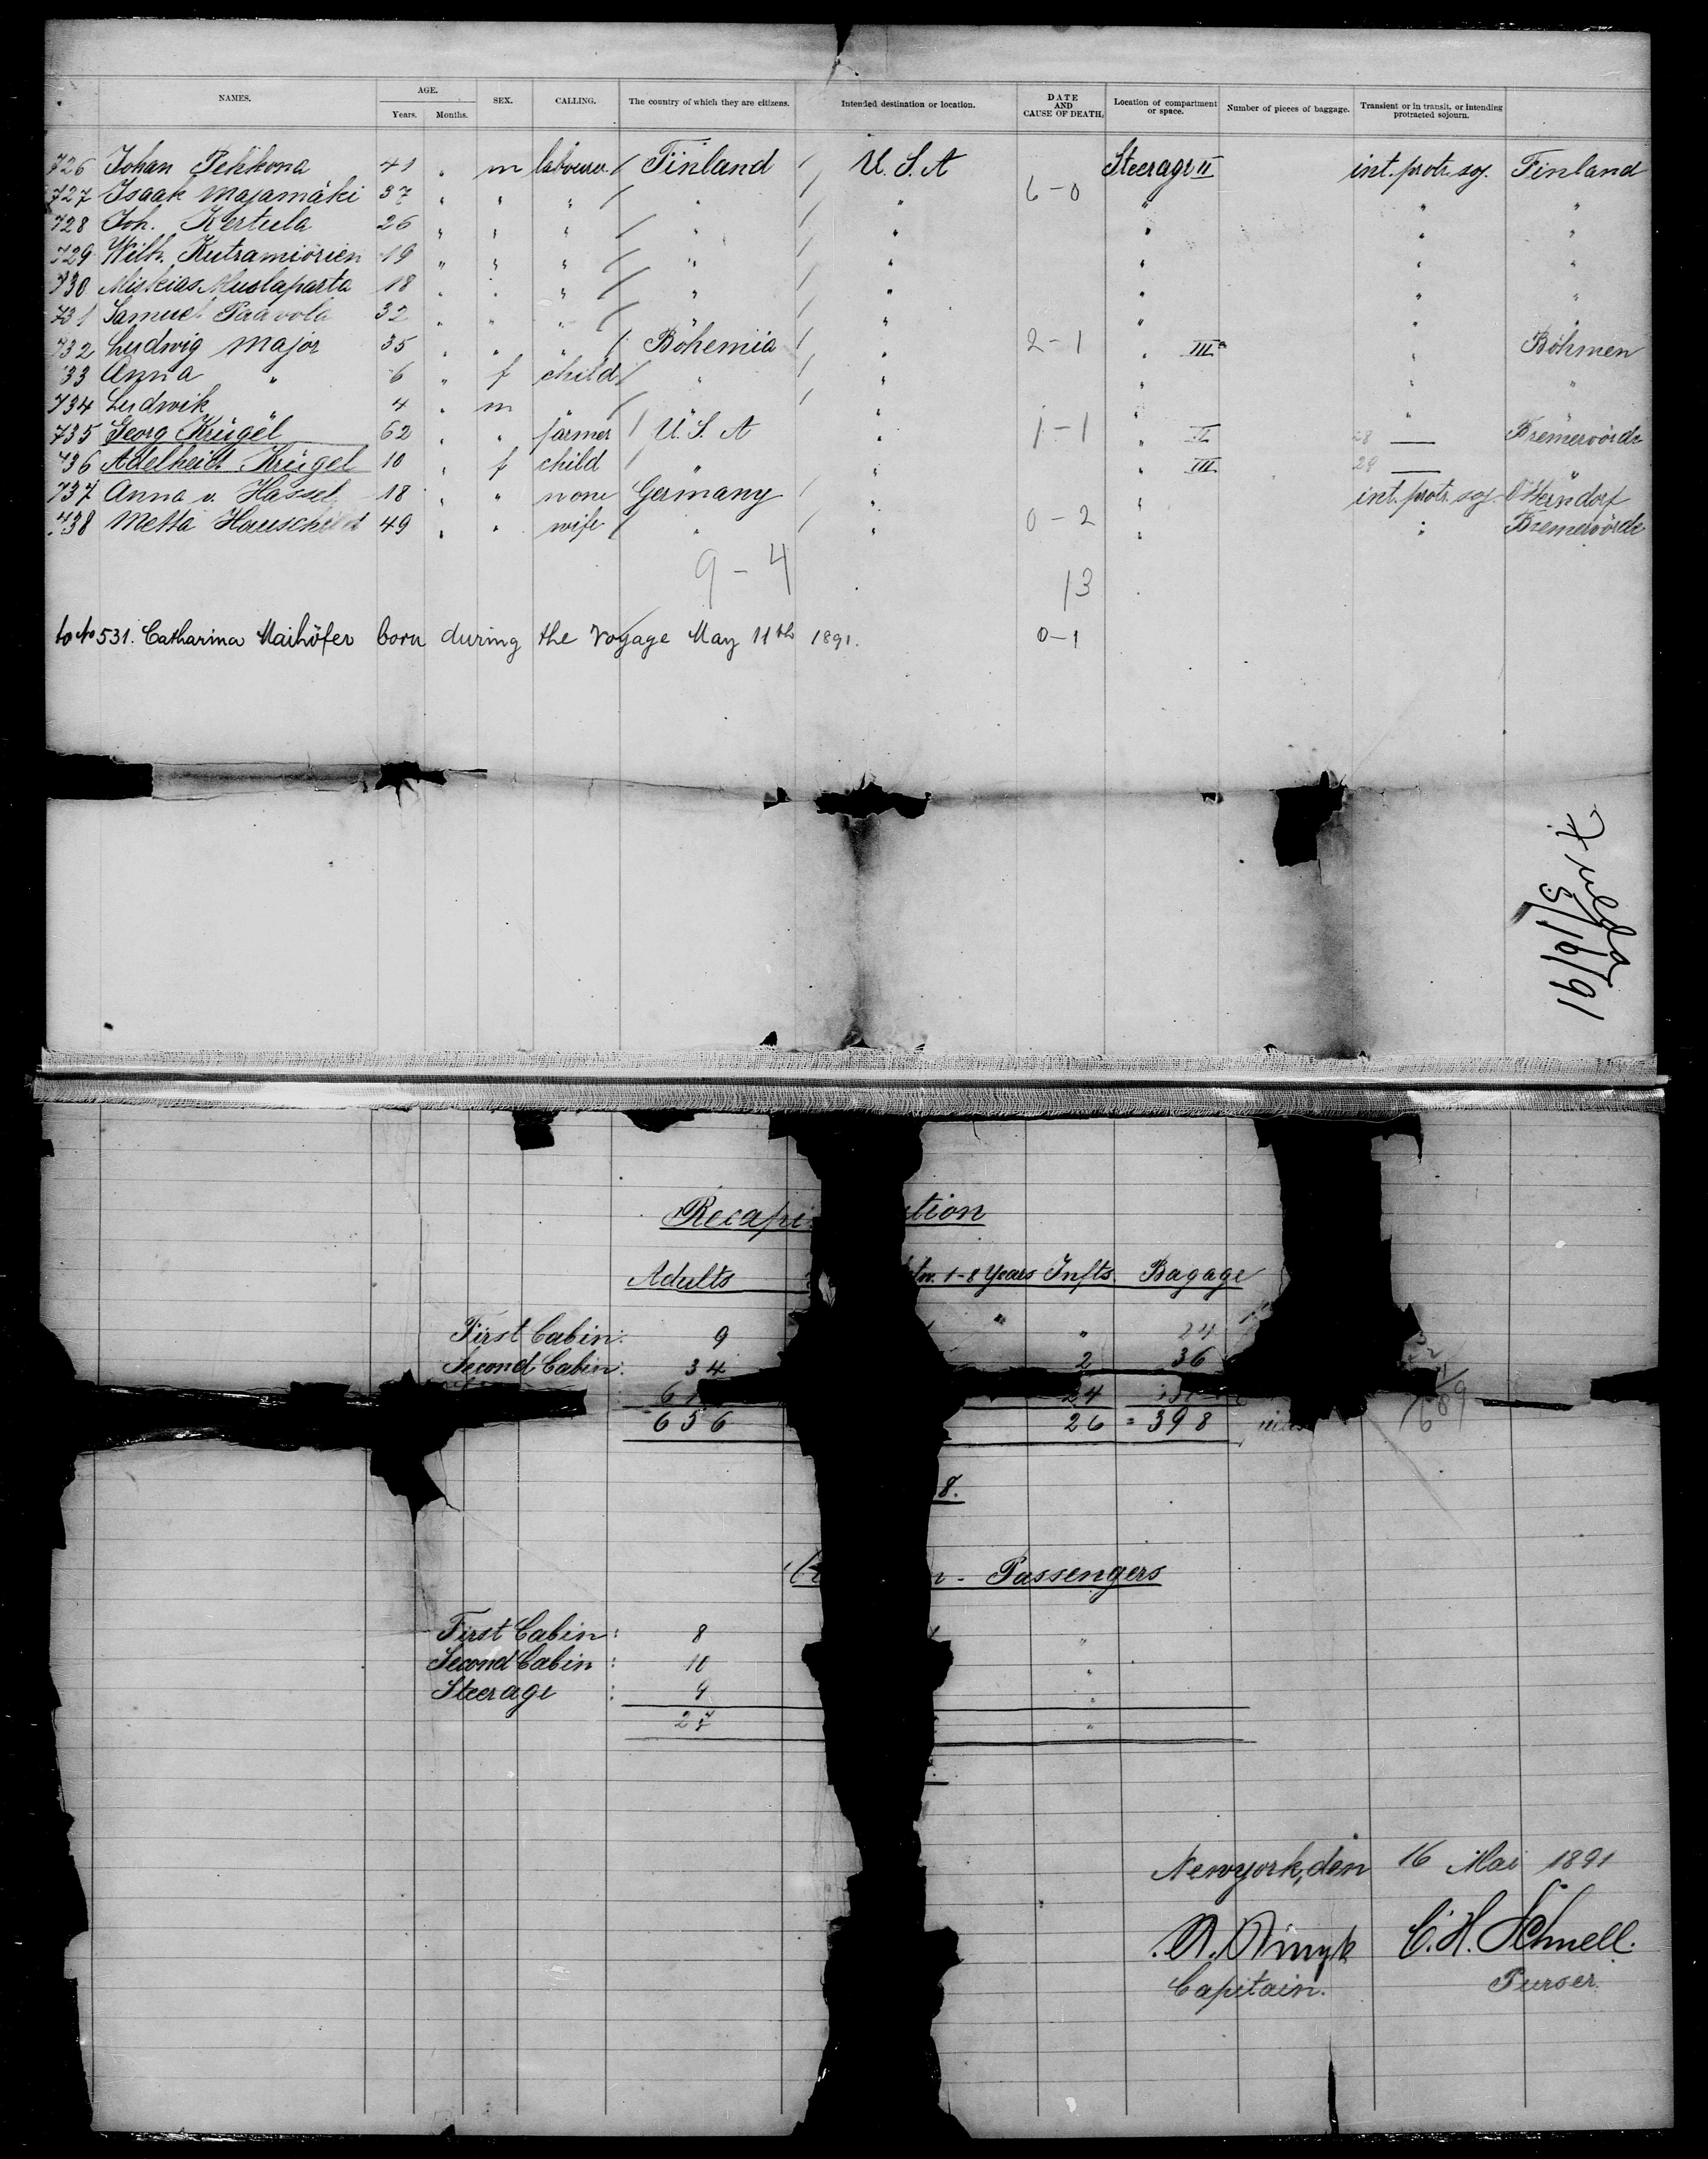 NAMES. AGE. Years. Months. SEX. CALLING. The country of which they are citizens. Intended destination or location. DATE AND CAUSE OF DEATH. Location of compartment or space. Number of pieces of baggage. Transient or in transit, or intending protracted sojourn.
726 Johan Pehkona 41 " m labourer / Finland / U. S. A Steerage II int. protr. soj. Finland
727 Isaak Majamäki 37 " " " / " / " 6-0 " " "
728 Joh. Kertula 26 " " " / " / " " " "
729 Wilh. 19 " " " / " / " " " "
730 18 " " " / " / " " " "
731 Samuel Paavola 32 " " " / " / " " " "
732 Ludwig Major 35 " " " / Böhemia / " 2-1 " III " Böhmen
733 Anna " 6 " f child / " / " " " "
734 Ludwik " 4 " m / / " " "
735 Georg Krügel 62 " " farmer / U. S. A " 1-1 " II 28 — Bremervörde
736 Adelheid Krügel 10 " f child / " " " III 29 — "
737 Anna v. Hassel 18 " " none Germany / " " int. protr. soj.
738 Metta 49 " " wife / " / " 0-2 " " Bremervörde
9-4 13
to No 531. Catharina Maihöfer born during the voyage May 11th 1891. 0-1
Fulda
5/16/91
Recapi tion
Adults 1-8 Years Infts. Bagage
First Cabin: 9 " " 24
Second Cabin: 34 2 36
24
656 26 = 398
8.
Passengers
First Cabin: 8 "
Second Cabin: 10 "
Steerage : 9 "
27 "
Newyork, den 16 Mai 1891
C. H. Schnell.
Capitain. Purser.